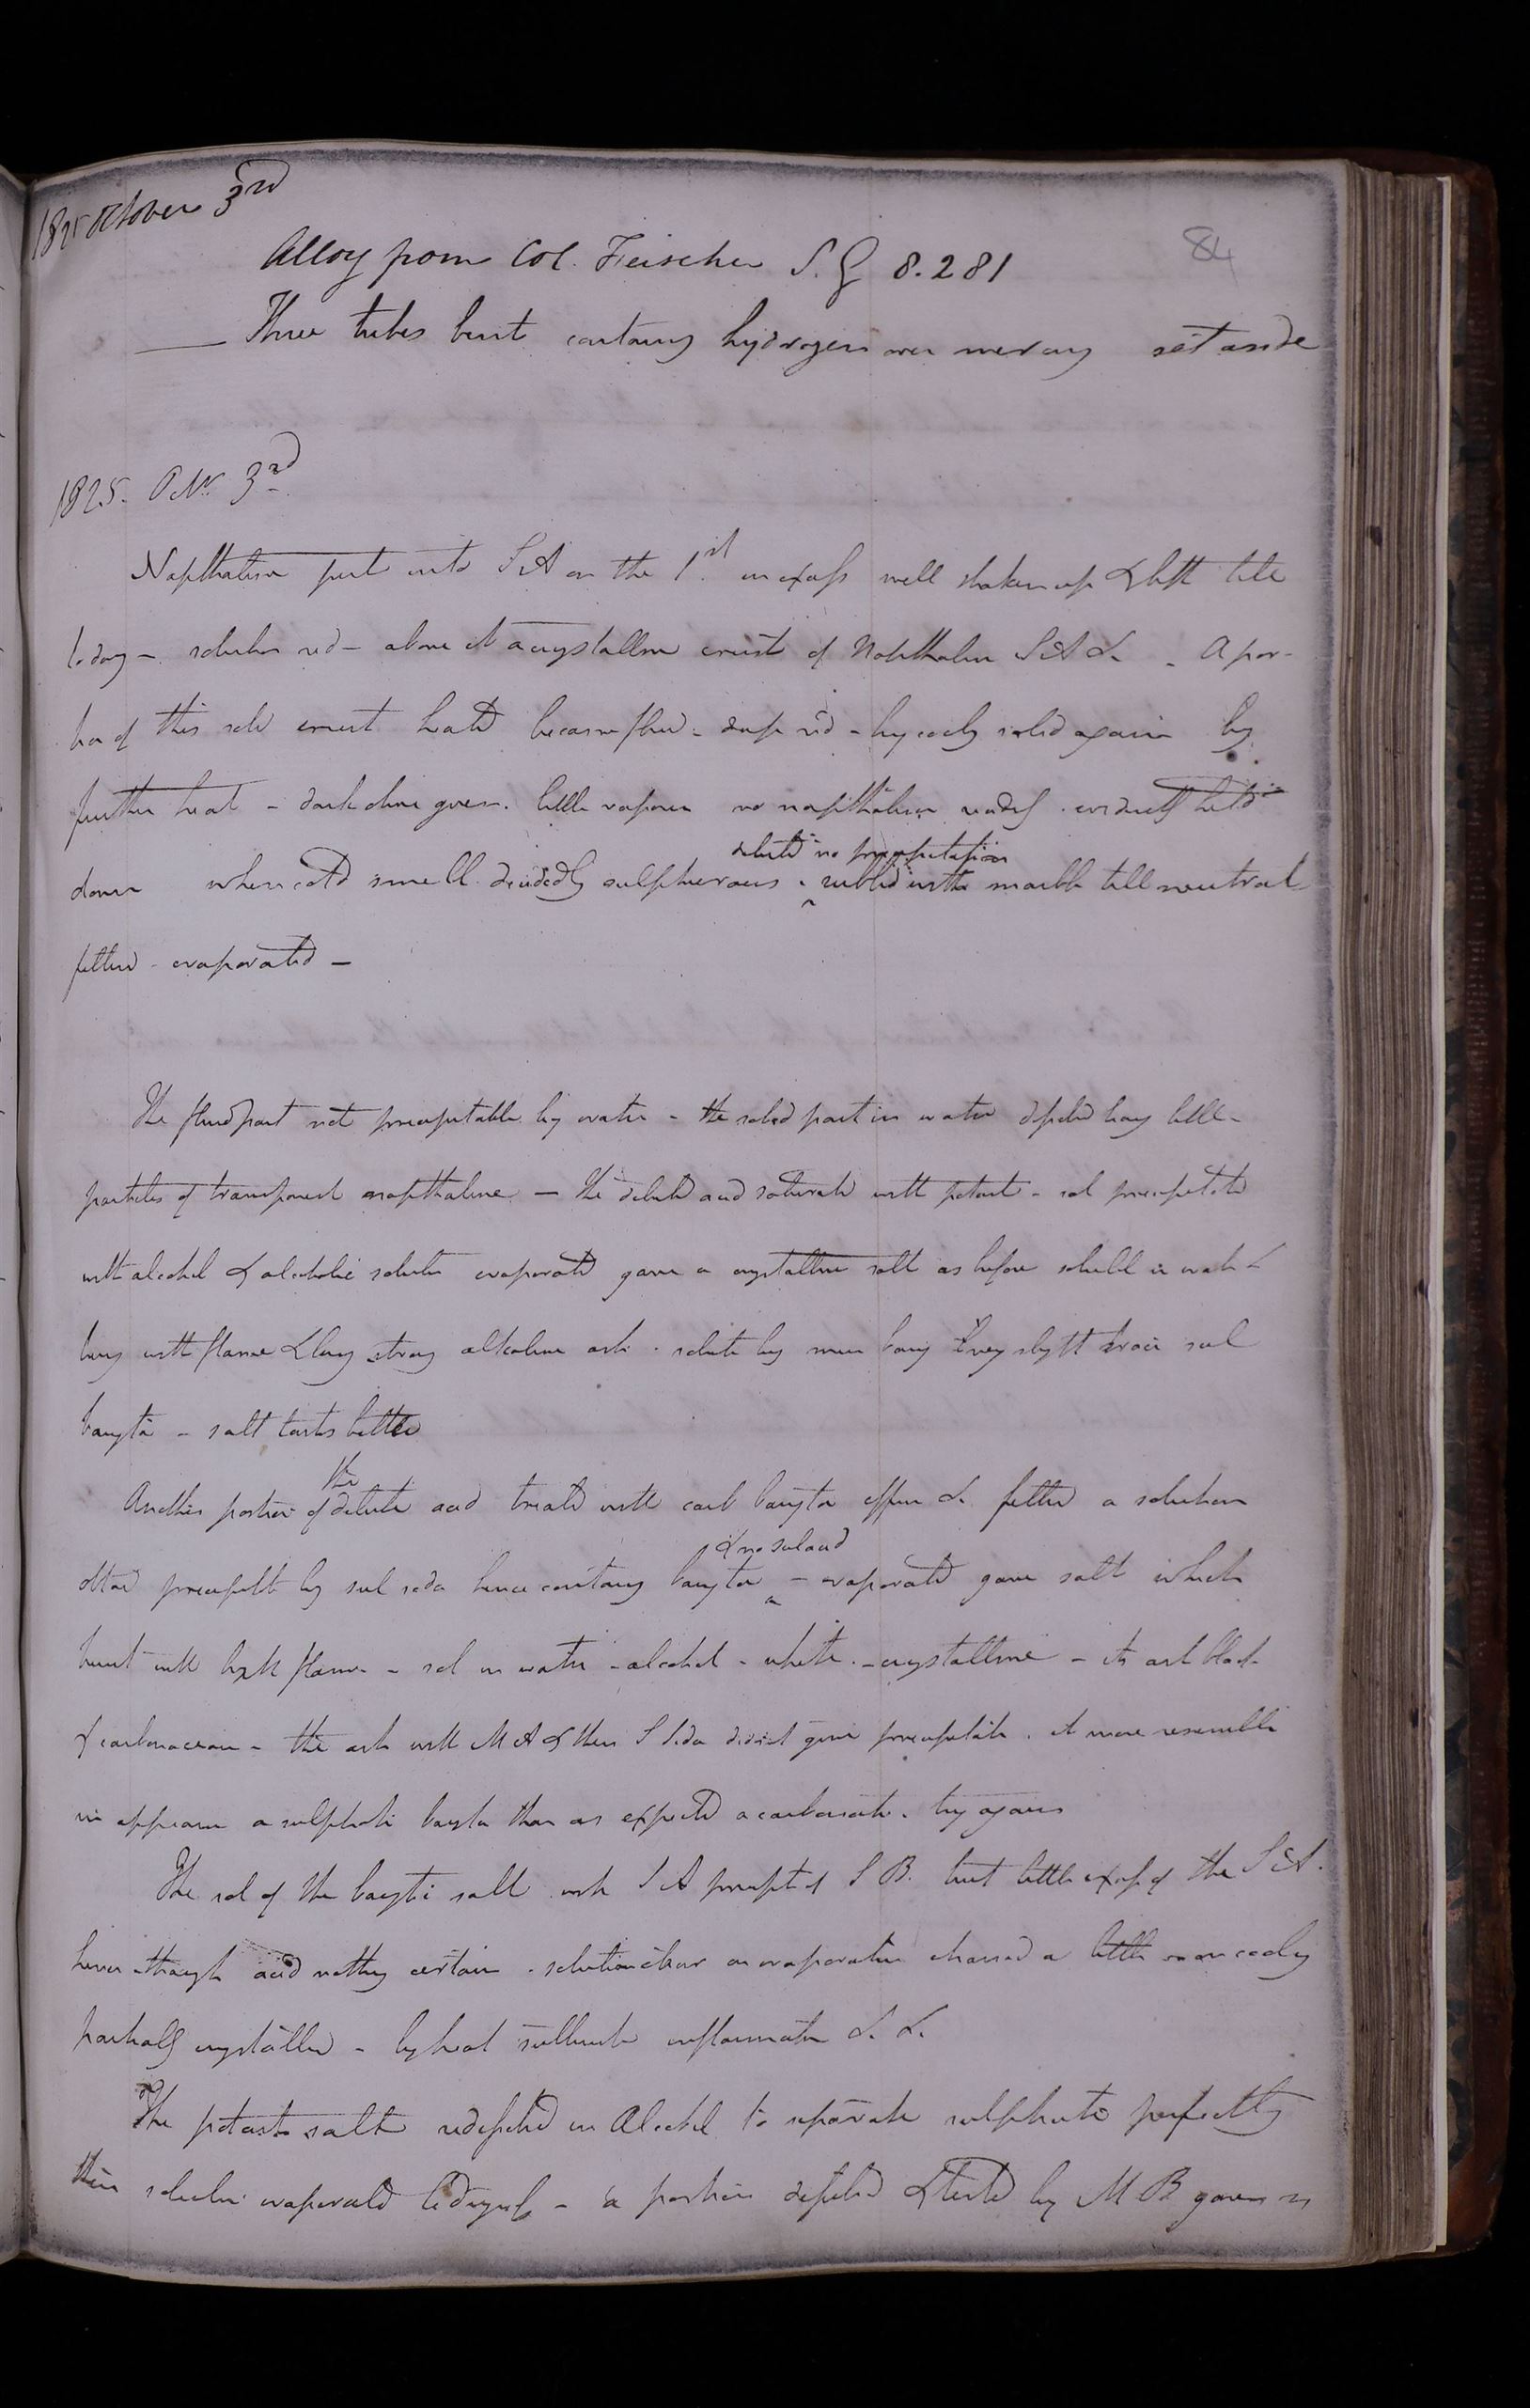 1825 October 3rd
84
Alloy from Col. Feischer S.G 8.281
Three tubes bent containg hydrogen over mercury set aside
1825. Octr 3rd
Napthaline put into S A on the 1st in excess well shaken up & left till
today - solution red - above it a crystalline crust of Napthaline S A &c - A por-
tion of this solid crust heated became fluid - deep red - by coolg solid again by
further heat - dark olive green. little vapour no napthaline readily evidently held
diluted no precipitation
down when cold smell decidedly sulphurous - rubbed with marble till neutral
filtered - evaporated -
The fluid part not precipitable by water - the solid part in water dissolved leavg little
particles of transparent napthaline - The diluted acid saturated with potash - sol precipitated
with alcohol & alcoholic solution evaporated gave a crystalline salt as before soluble in water &
burng with flame & leavg strong alkaline ash - solution by mur baryt very slight trace sul
baryta - salt tastes bitter
the
Another portion of dilute acid treated with carb baryta efferv &c filtered a solution
& no sul acid
obtd precipitd by sul soda hence containg baryta - evaporated gave salt which
burnt with bright flame - sol in water - alcohol - white - crystalline - its ash black
& carbonaceous - the ash with M A & then S Soda did not give precipitate. it more resembled
in appearance a sulphate baryta than as expected a carbonate. try again
The sol of the barytic salt with S A precipitd S B. but little excess of the S A.
hence though acid nothing certain - solution clear on evaporation charred a little & on coolg
partially crystallized - by heat sulphurets inflammation &c &c
The potash salt redissolved in Alcohol to separate sulphate perfectly
then solution evaporated to dryness - a portion dissolved & tested by M B gave no